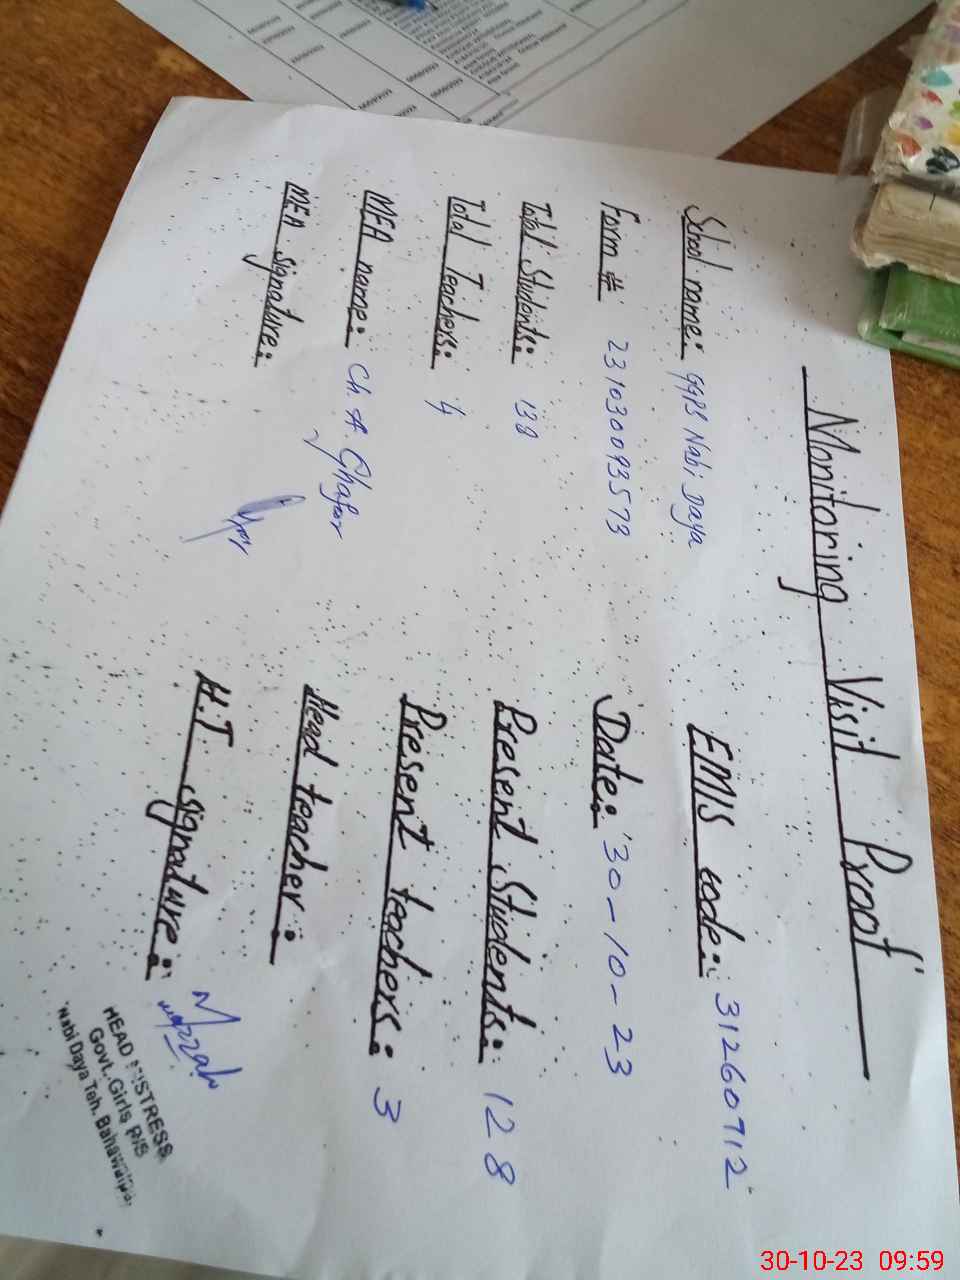 Monitoring Visit Proof
School name: GGPS Nabi Daya EMIS code: 31260712
Form # 231030093573 Date: 30-10-23
Total Students: 138 Present Students: 128
Total Teachers: 4 Present teachers: 3
MEA name: Ch. A Ghafoor Head teacher:
MEA signature: H.T signature:
HEAD MISTRESS
Govt. Girls P/S
Nabi Daya Teh. Bahawalpur
30-10-23 09:59